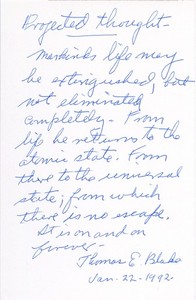 Projected thought-
Mankinds life may
be extinguished, but
not eliminated
completely - From
life he returns to the
atomic state. From
there to the universal
state; from which
there is no escape.
It is on and on
forever-
Thomas E. Blake
Jan-22-1992-